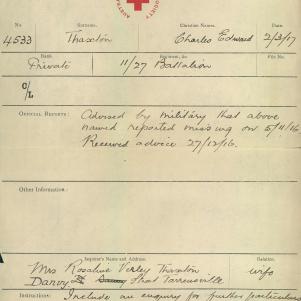 AUSTR SOCIETY
No. Surname. Christian Names. Date.
4533 Thaxton Charles Edward 2/3/17
Rank. Regiment, &c. File No.
Private 11/27 Battalion
C/L
OFFICIAL REPORTS: Advised by military that above
named reported missing on 5/11/16
Received advice 27/12/16.
Other Information:
Inquirer's Name and Address. Relation.
Mrs Rosalive Verley Thaxton wife
Danvy St Torrensville
Instructions: Include an enquiry for further particulars